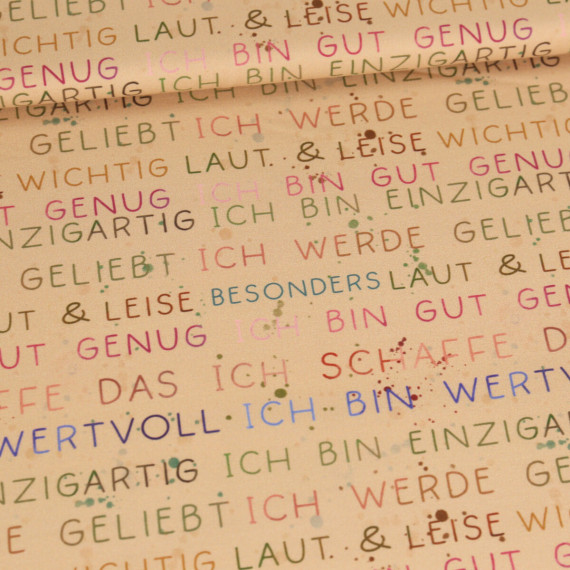 GELIEBT ICH
WICHTIG LAUT. & LEISE WICHTIG
GENUG ICH BIN GUT GENUG
EINZIGARTIG ICH BIN EINZIGARTIG
GELIEBT ICH WERDE GELIEBT
WICHTIG LAUT. & LEISE WICHTIG
GENUG ICH BIN GUT GENUG
EINZIGARTIG ICH BIN EINZIGARTIG
GELIEBT ICH WERDE GELIEBT
& LEISE BESONDERS LAUT & LE
UT GENUG ICH BIN GUT GEN
FFE DAS ICH SCHAFFE D
WERTVOLL ICH BIN WERTV
NZIGARTIG ICH BIN EINZIGA
E GELIEBT ICH WERDE GE
TIG LAUT. & LEISE WI
ICH BIN GUT